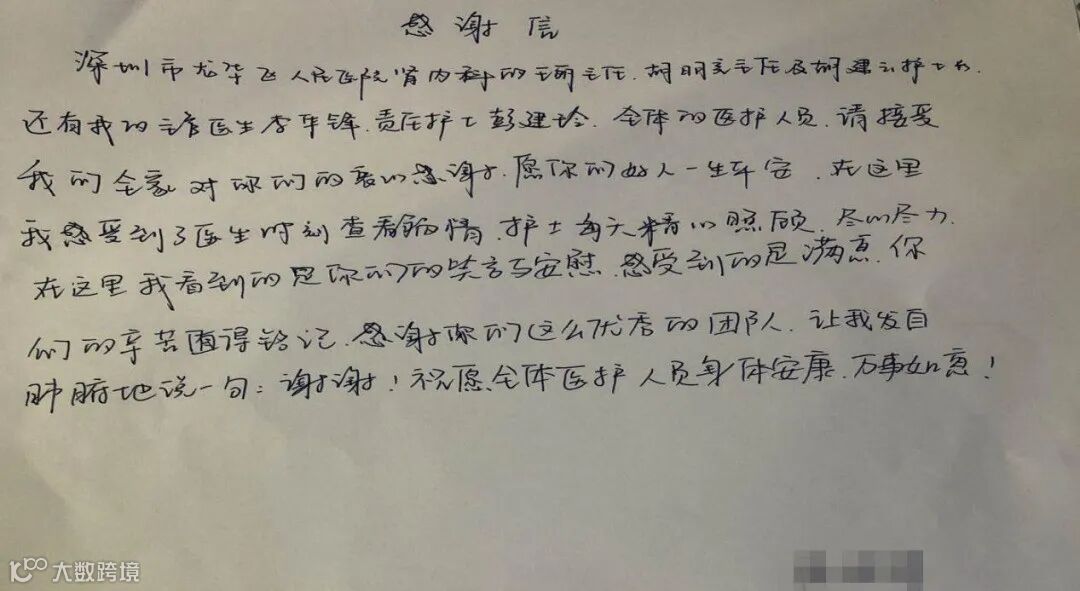 感谢信
深圳市龙华区人民医院肾内科的主任、胡明亮主任及胡建云护士长、
还有我的主管医生李年锋、责任护士彭建玲、全体的医护人员、请接受
我们全家对你们的衷心感谢、愿你们好人一生平安、在这里
我感受到了医生时刻查看病情、护士每天精心照顾、尽心尽力、
在这里我看到的是你们的笑言与安慰、感受到的是满意、你
们的辛苦值得铭记、感谢你们这么优秀的团队、让我发自
肺腑地说一句：谢谢！祝愿全体医护人员身体安康、万事如意！
大数跨境